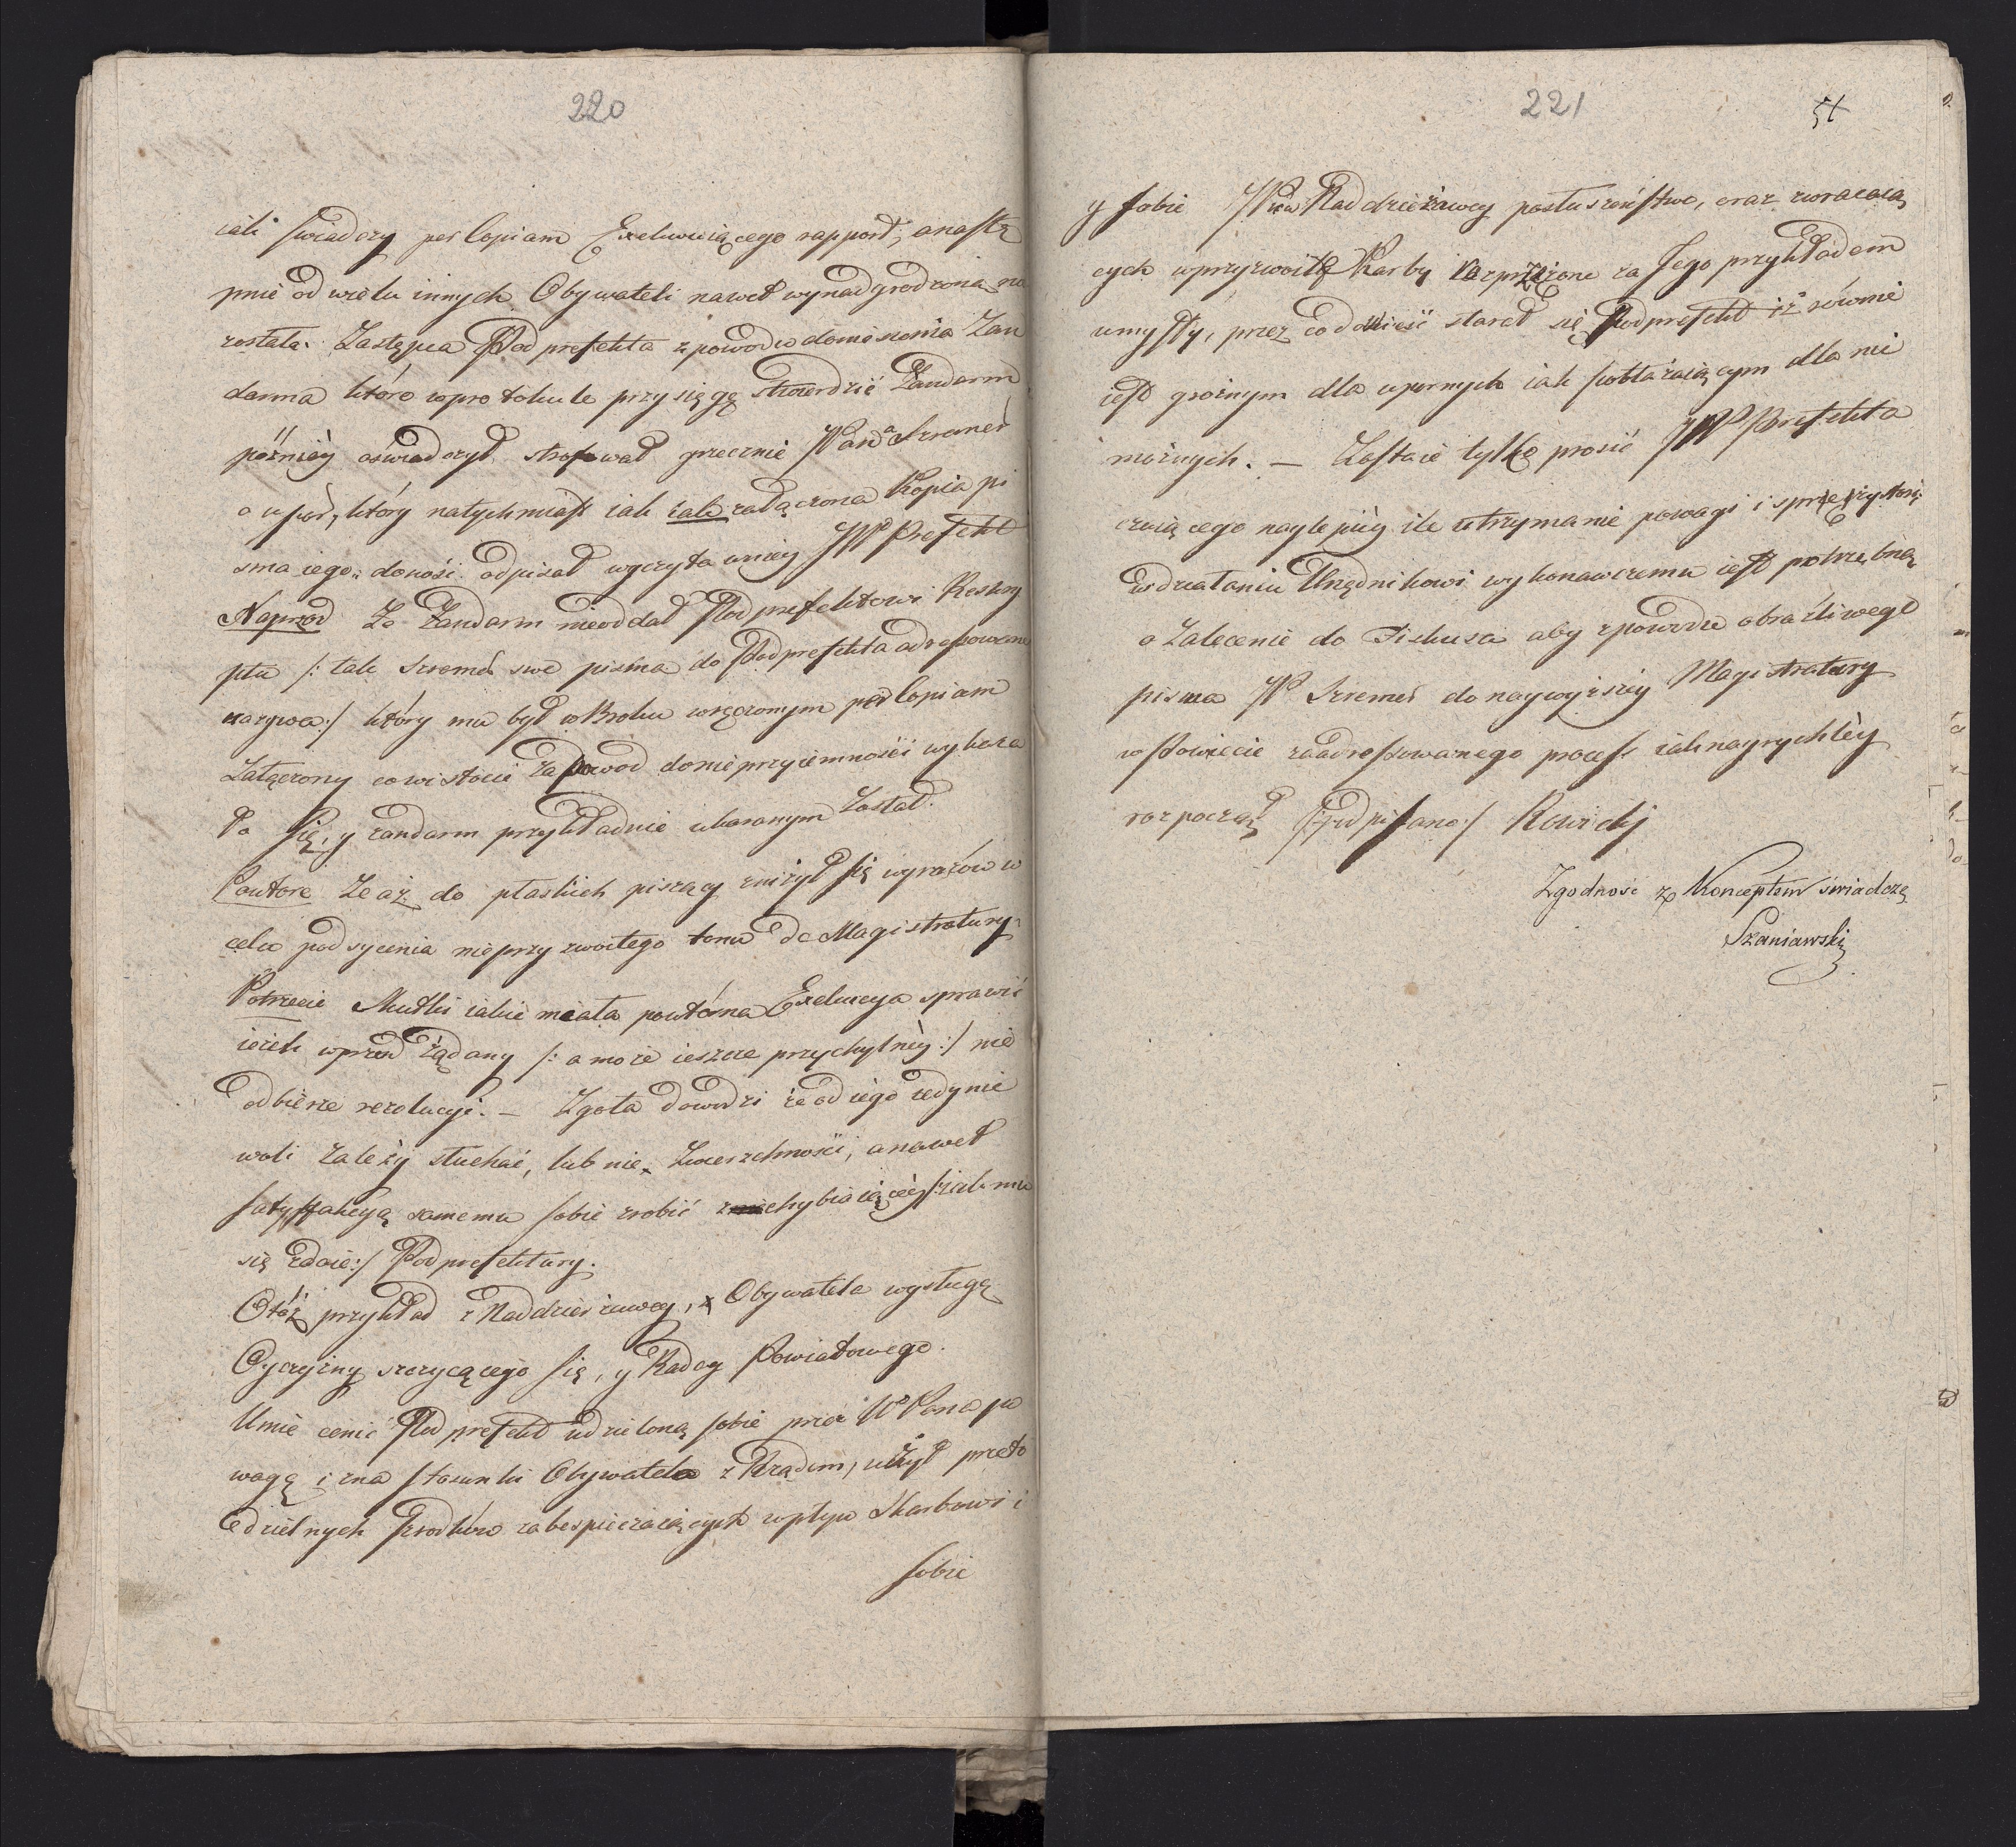 220
iak swiadczy per Copiam Exekwuiącego rapport, a nastę
pnie od wielu innych Obywateli nawet wynadgrodzoną na
została. Zastępca Podprefekta z powodu doniesienia Żan
darma które w protokule przysięgę stwierdzić Żandarm
późniéy oświadczył strofował grzecznie WPana Szremer
o upór, który natychmiast iak załączona Kopia pi
sma iego donosi odpisał wyczyta w niey JWP Prefekt
Naprzod Ze Żandarm nieoddał Podprefektowi Reskry
ptu /: tak Szremer swe pisma do Podprefekta adressowane
nazywa :/ który mu był w Broku wręczonym per Copiam
załączony co w istocie za powod do nieprzyiemności wykaza
ło się, y żandarm przykładnie ukaranym został.
Powtore Ze aż do płaskich piszący zniżył się wyrazów w
celu podsycenia nieprzyzwoitego tonu do Magistratury
Potrzecie Skutki iakie miała powtórna Exekucya sprawić
ieżeli wprzód żądany /: a może ieszcze przychylniéy :/ nie
odbierze rezolucyi. — Zgoła dowodzi że od iego iedynie
woli zależy słuchać, lub nie Zwierzchności, a nawet
satysfakcyą samemu sobie zrobić z uchybiaiącéy /: iak mu
się zdaie :/ Podprefektury.
Otóż przykład z Naddzierżawcy, z Obywatela wysługą
Oyczyzny szczycącego się, y Radcy Powiatowego.
Umie cenić Podprefekt udzieloną sobie przez WPana po
wagę i zna stosunki Obywatela z Rządem, użył przeto
dzielnych srodków zabespieczaiących wpływ Skarbowi i
sobie
221
51
y sobie WPana Naddzierżawcy posłuszeństwo, oraz zwracaią
cych w przyzwoite Karby rozprzężone za Jego przykładem
umysły, przez co donieść starał się Podprefekt iż rownie
iest groźnym dla upornych iak pobłażaiącym dla nie
możnych. — Zostaie tylko prosić JWP Prefekta
czuiącego naylepiéy ile utrzymanie powagi i sprężystości
w działaniu Urzędnikowi wykonawczemu iest potrzebną
o zalecenie do Fiskusa aby z powodu obraźliwego
pisma WP Szremer do naywyższéy Magistratury
w Powiecie zaadressowanego process iak nayrychléy
rozpoczął /: podpisano :/ Rowicki
Zgodnosc z Konceptem swiadczę
Szaniawski